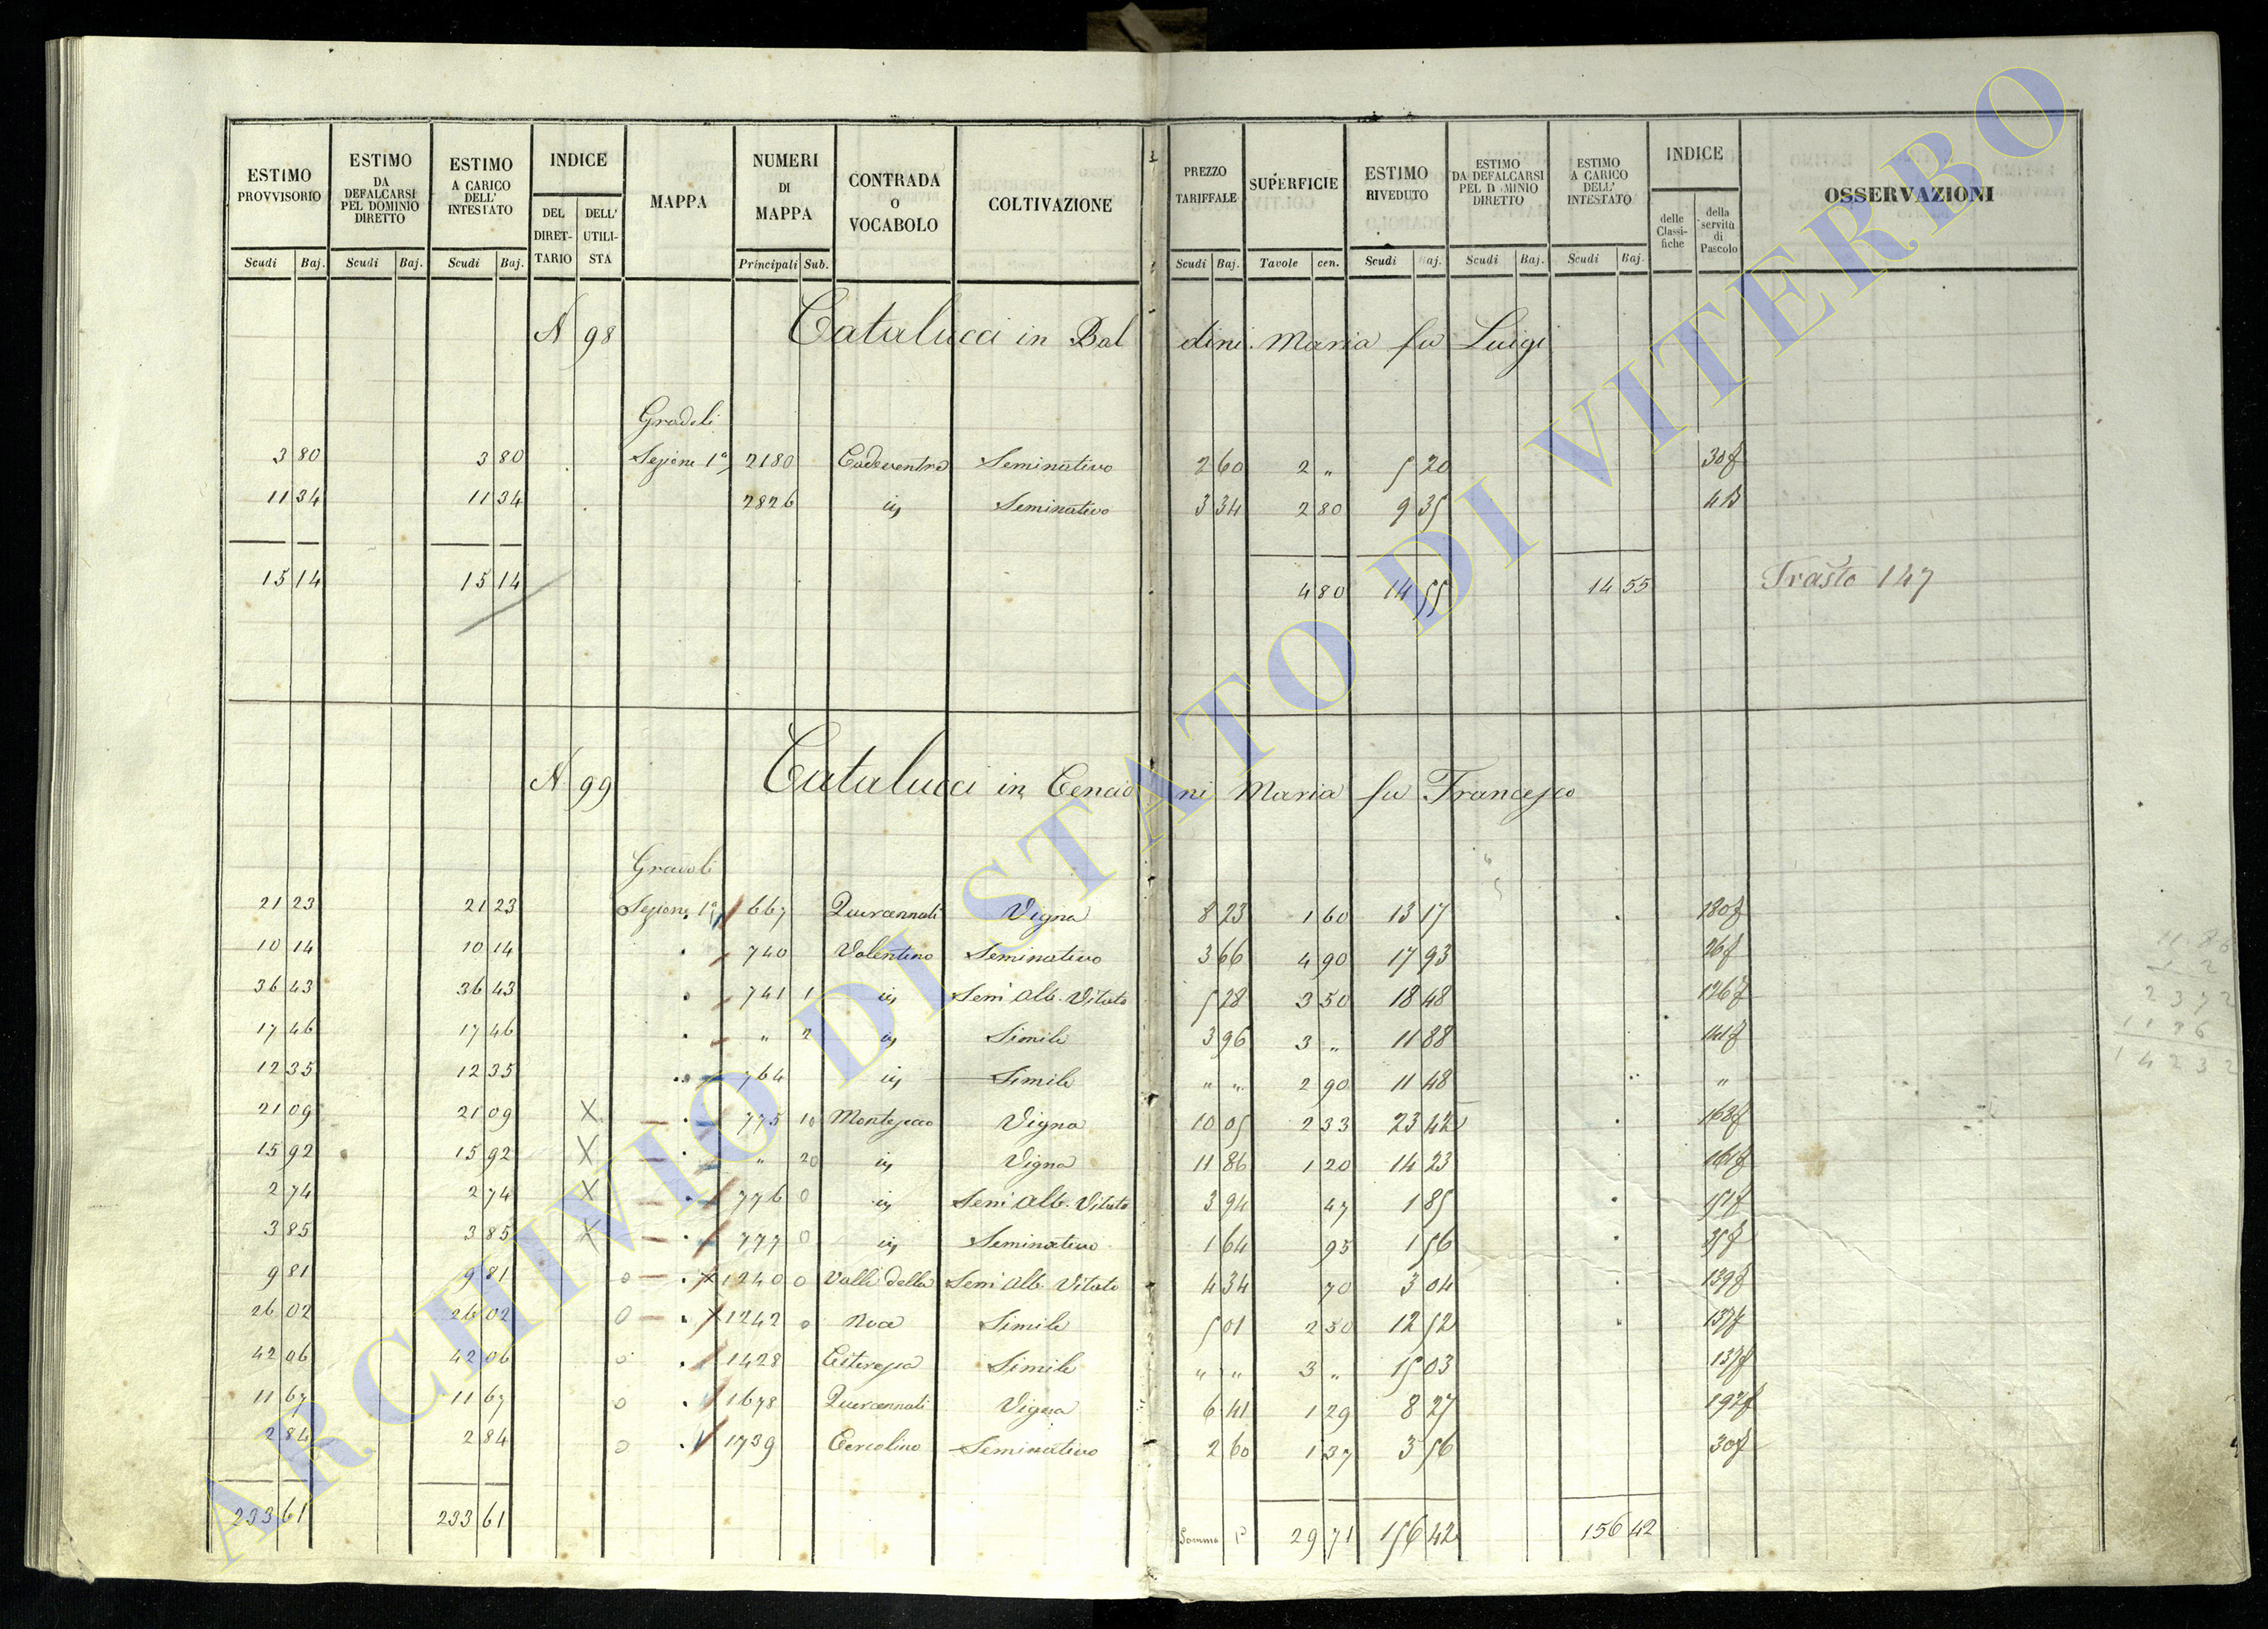 ESTIMO PROVVISORIO Scudi Baj.
ESTIMO DA DEFALCARSI PEL DOMINIO DIRETTO Scudi Baj.
ESTIMO A CARICO DELL' INTESTATO Scudi Baj.
INDICE DEL DIRET-TARIO DELL' UTILI-STA
MAPPA
NUMERI DI MAPPA Principali Sub.
CONTRADA O VOCABOLO
COLTIVAZIONE
PREZZO TARIFFALE Scudi Baj.
SUPERFICIE Tavole cen.
ESTIMO RIVEDUTO Scudi Baj.
ESTIMO DA DEFALCARSI PEL D MINIO DIRETTO Scudi Baj.
ESTIMO A CARICO DELL' INTESTATO Scudi Baj.
INDICE delle Classi-fiche della servitù di Pascolo
OSSERVAZIONI
N 98 Catalucci in Baldini Maria fu Luigi
Gradoli
3 80 3 80 Sezione 1a 2180 Seminativo 2 60 2 „ 5 20 30f
11 34 11 34 2826 Seminativo 3 34 2 80 9 35
15 14 15 14 4 80 14 55 14 55 Trasto 147
N 99 Catalucci in Cencioni Maria fu Francesco
Gradoli
21 23 21 23 Sezione 1a 667 Quercannati Vigna 8 23 1 60 13 17 180f
10 14 10 14 740 Valentino Seminativo 3 66 4 90 17 93 26f
36 43 36 43 741 1 Sem Alb. Vitato 5 28 3 50 18 48 126f
17 46 17 46 „ 2 Simile 3 96 3 „ 11 88 141f
12 35 12 35 764 Simile „ „ 2 90 11 48 „
21 09 21 09 X 775 10 Montesecco Vigna 10 05 2 33 23 42 163f
15 92 15 92 X „ 20 Vigna 11 86 1 20 14 23 161f
2 74 2 74 X 776 0 Sem Alb. Vitato 3 94 47 1 85
3 85 3 85 X 777 0 Seminativo 1 64 95 1 56
9 81 9 81 0 1240 0 Valle della Sem Alb. Vitato 4 34 70 3 04 139f
26 02 26 02 0 1242 0 Noce Simile 5 01 2 50 12 52 137f
42 06 42 06 0 1428 Simile „ „ 3 „ 15 03 137f
11 67 11 67 0 1678 Quercannati Vigna 6 41 1 29 8 27 192f
2 84 2 84 0 1739 Cercolino Seminativo 2 60 1 37 3 56 30f
233 61 233 61 Somma 29 71 156 42 156 42
2372
14232
ARCHIVIO DI STATO DI VITERBO